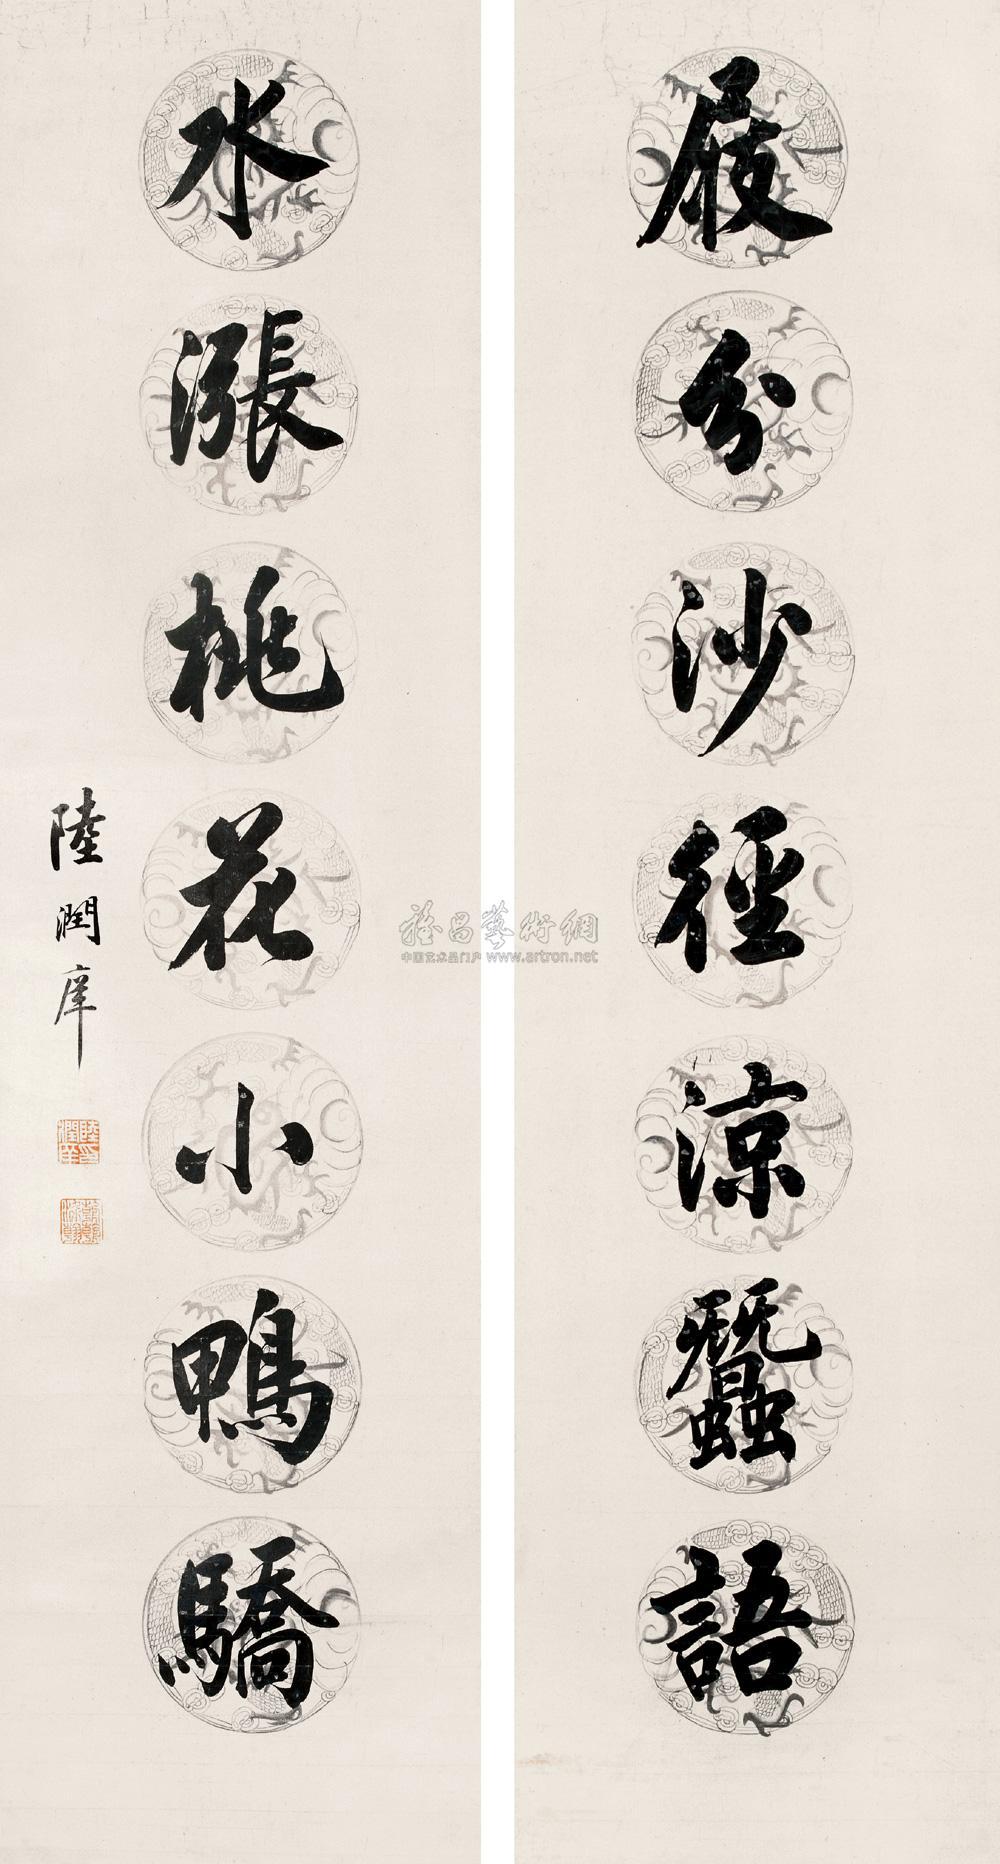 屐分沙徑涼蠶語
水漲桃花小鴨驕
陸潤庠
雅昌藝術網
中国艺术品门户 www.artron.net